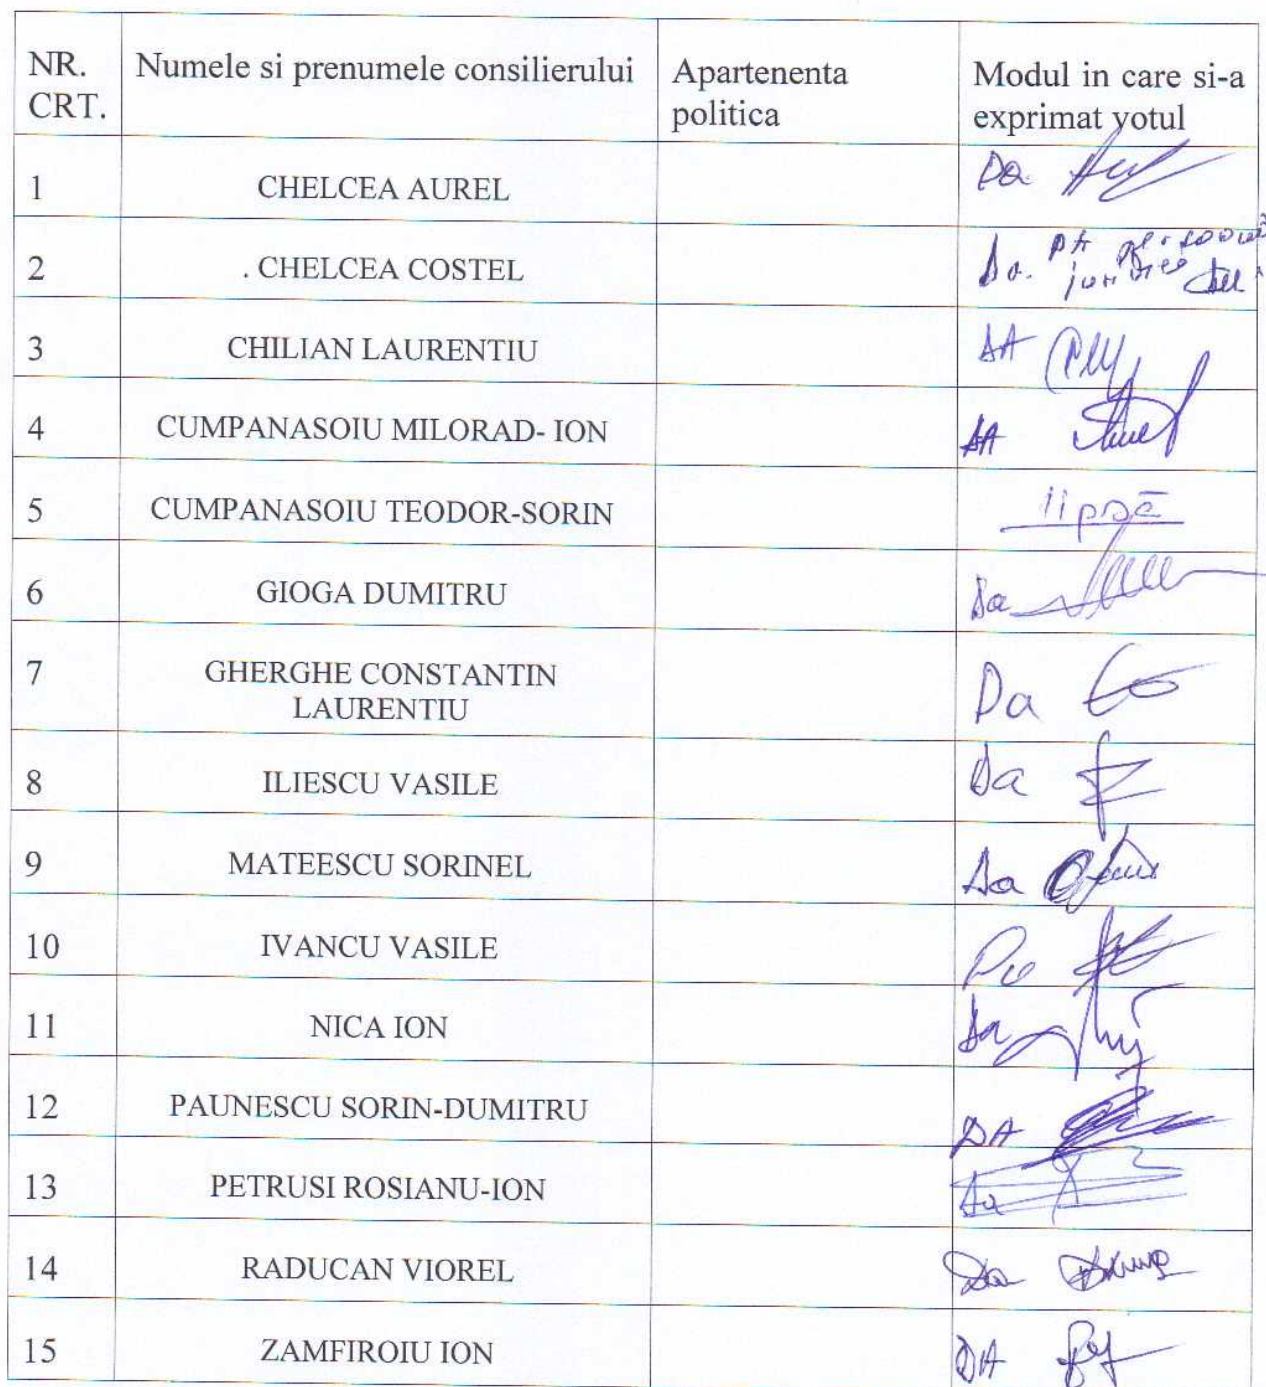 NR. CRT. Numele si prenumele consilierului Apartenenta politica Modul in care si-a exprimat votul
1 CHELCEA AUREL Da
2 . CHELCEA COSTEL Da. pt persoane juridice
3 CHILIAN LAURENTIU DA
4 CUMPANASOIU MILORAD- ION DA
5 CUMPANASOIU TEODOR-SORIN lipsă
6 GIOGA DUMITRU Da
7 GHERGHE CONSTANTIN LAURENTIU Da
8 ILIESCU VASILE Da
9 MATEESCU SORINEL Da
10 IVANCU VASILE
11 NICA ION Da
12 PAUNESCU SORIN-DUMITRU DA
13 PETRUSI ROSIANU-ION Da
14 RADUCAN VIOREL Da
15 ZAMFIROIU ION DA